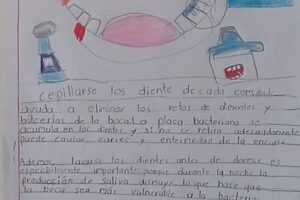 Cepillarse los diente de cada comidad
ayuda a eliminar los retos de dimentos y
bacterias de la boca.La placa bacteriana se
acumula en los dientes y si no se retira adecuadamente
puede causar caries y enfermedad de la encias
Ademas, lavarse los dientes antes de dormir es
especialmente importante porque durante la noche la
producción de saliva disnuye, lo que hace que
la boca sea más vulnerable a la bacterias